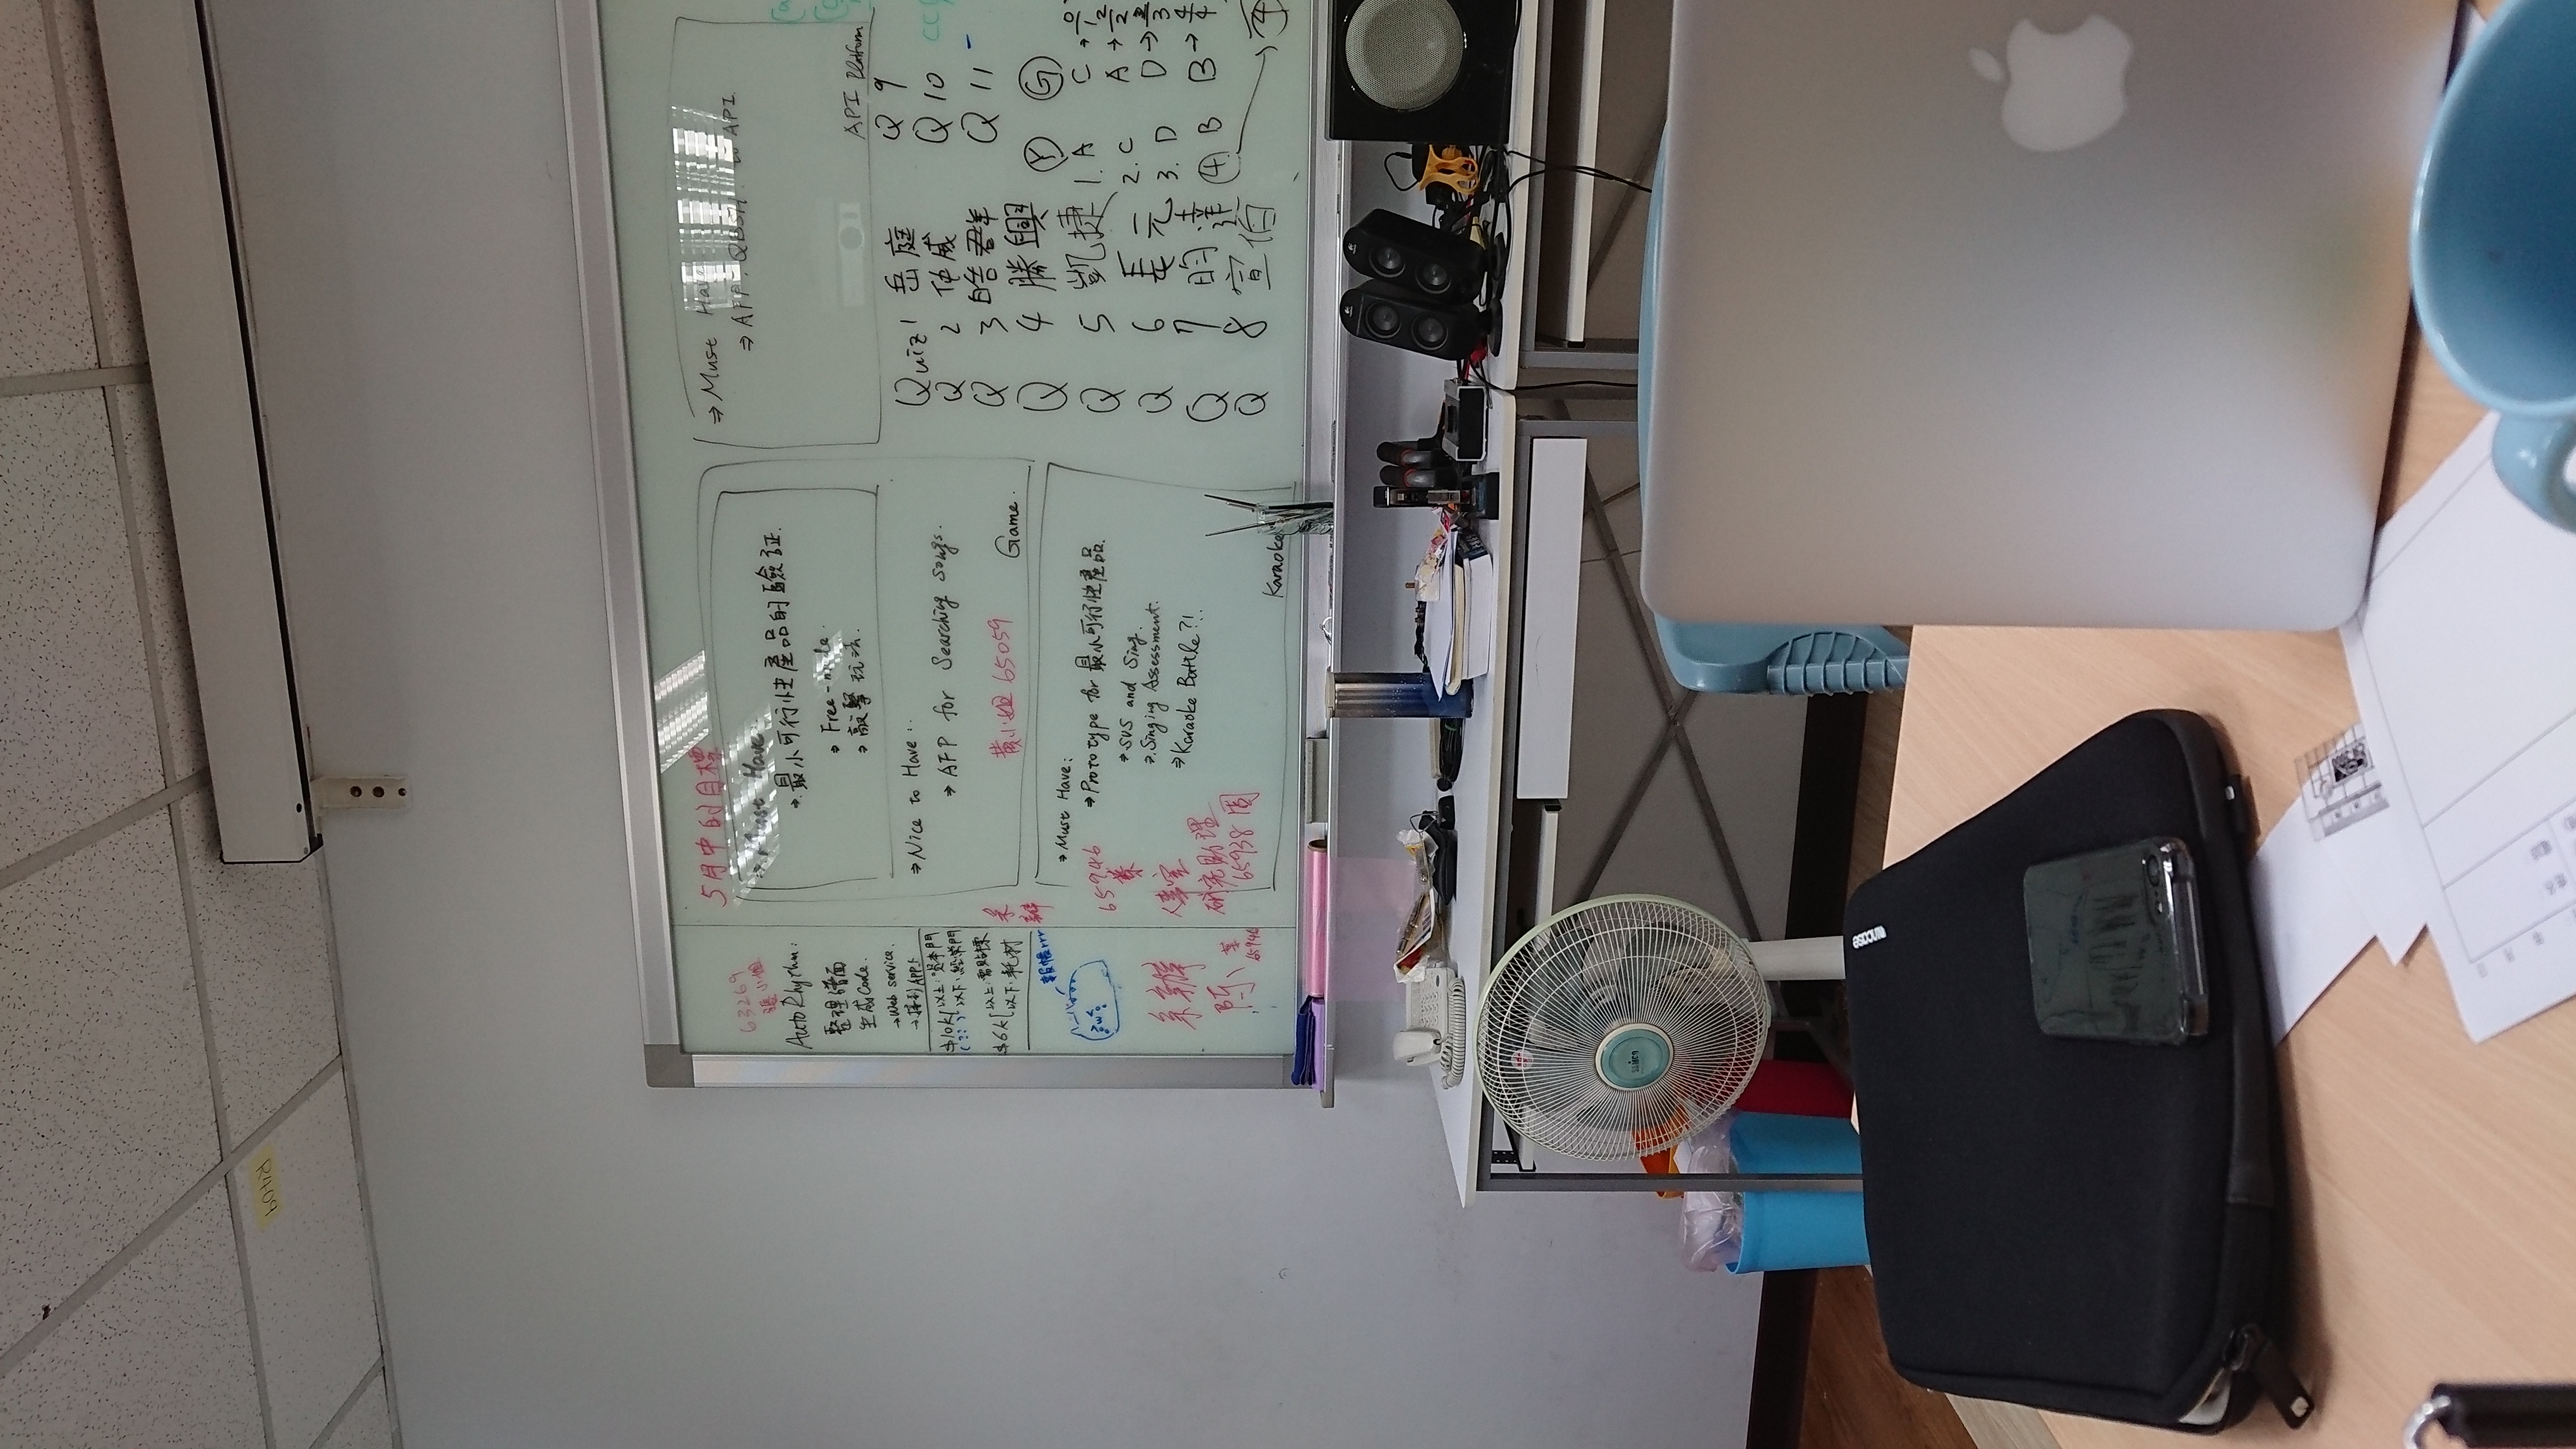 R409
63269
張小姐
AutoRhythm:
整理譜面
生成Code.
→Web service.
→接到APP上
$10k 以上:資本門
(??) 以下:經常門
$6k 以上:需貼標
以下:耗材
報帳rrr
系辦
陳
蔡
65946
5月中的目標
⇒ Must Have:
⇒ 最小可行性產品的驗証.
⇒ Free-mode.
⇒ 敲擊玩法.
⇒ Nice to Have:
⇒ AFP for Searching Songs.
黃小姐 65059
Game.
系辦
⇒ Must Have:
⇒ Prototype for 最小可行性產品.
⇒ SVS and Sing.
⇒ Singing Assessment.
⇒ Karaoke Battle?!!
Karaoke
65946
蔡
人事室
研究助理
65938 周
⇒ Must Have
⇒ APP. QBSH. to API.
API Platform
Quiz 1 岳庭
Q 2 仲威
Q 3 皓群
Q 4 勝興
Q 5 凱捷
Q 6 長元
Q 7 昀達
Q 8 宣伯
Q 9
Q 10
Q 11
Y G
1. A C →
2. C A →
3. D D →
4 B B →
incase